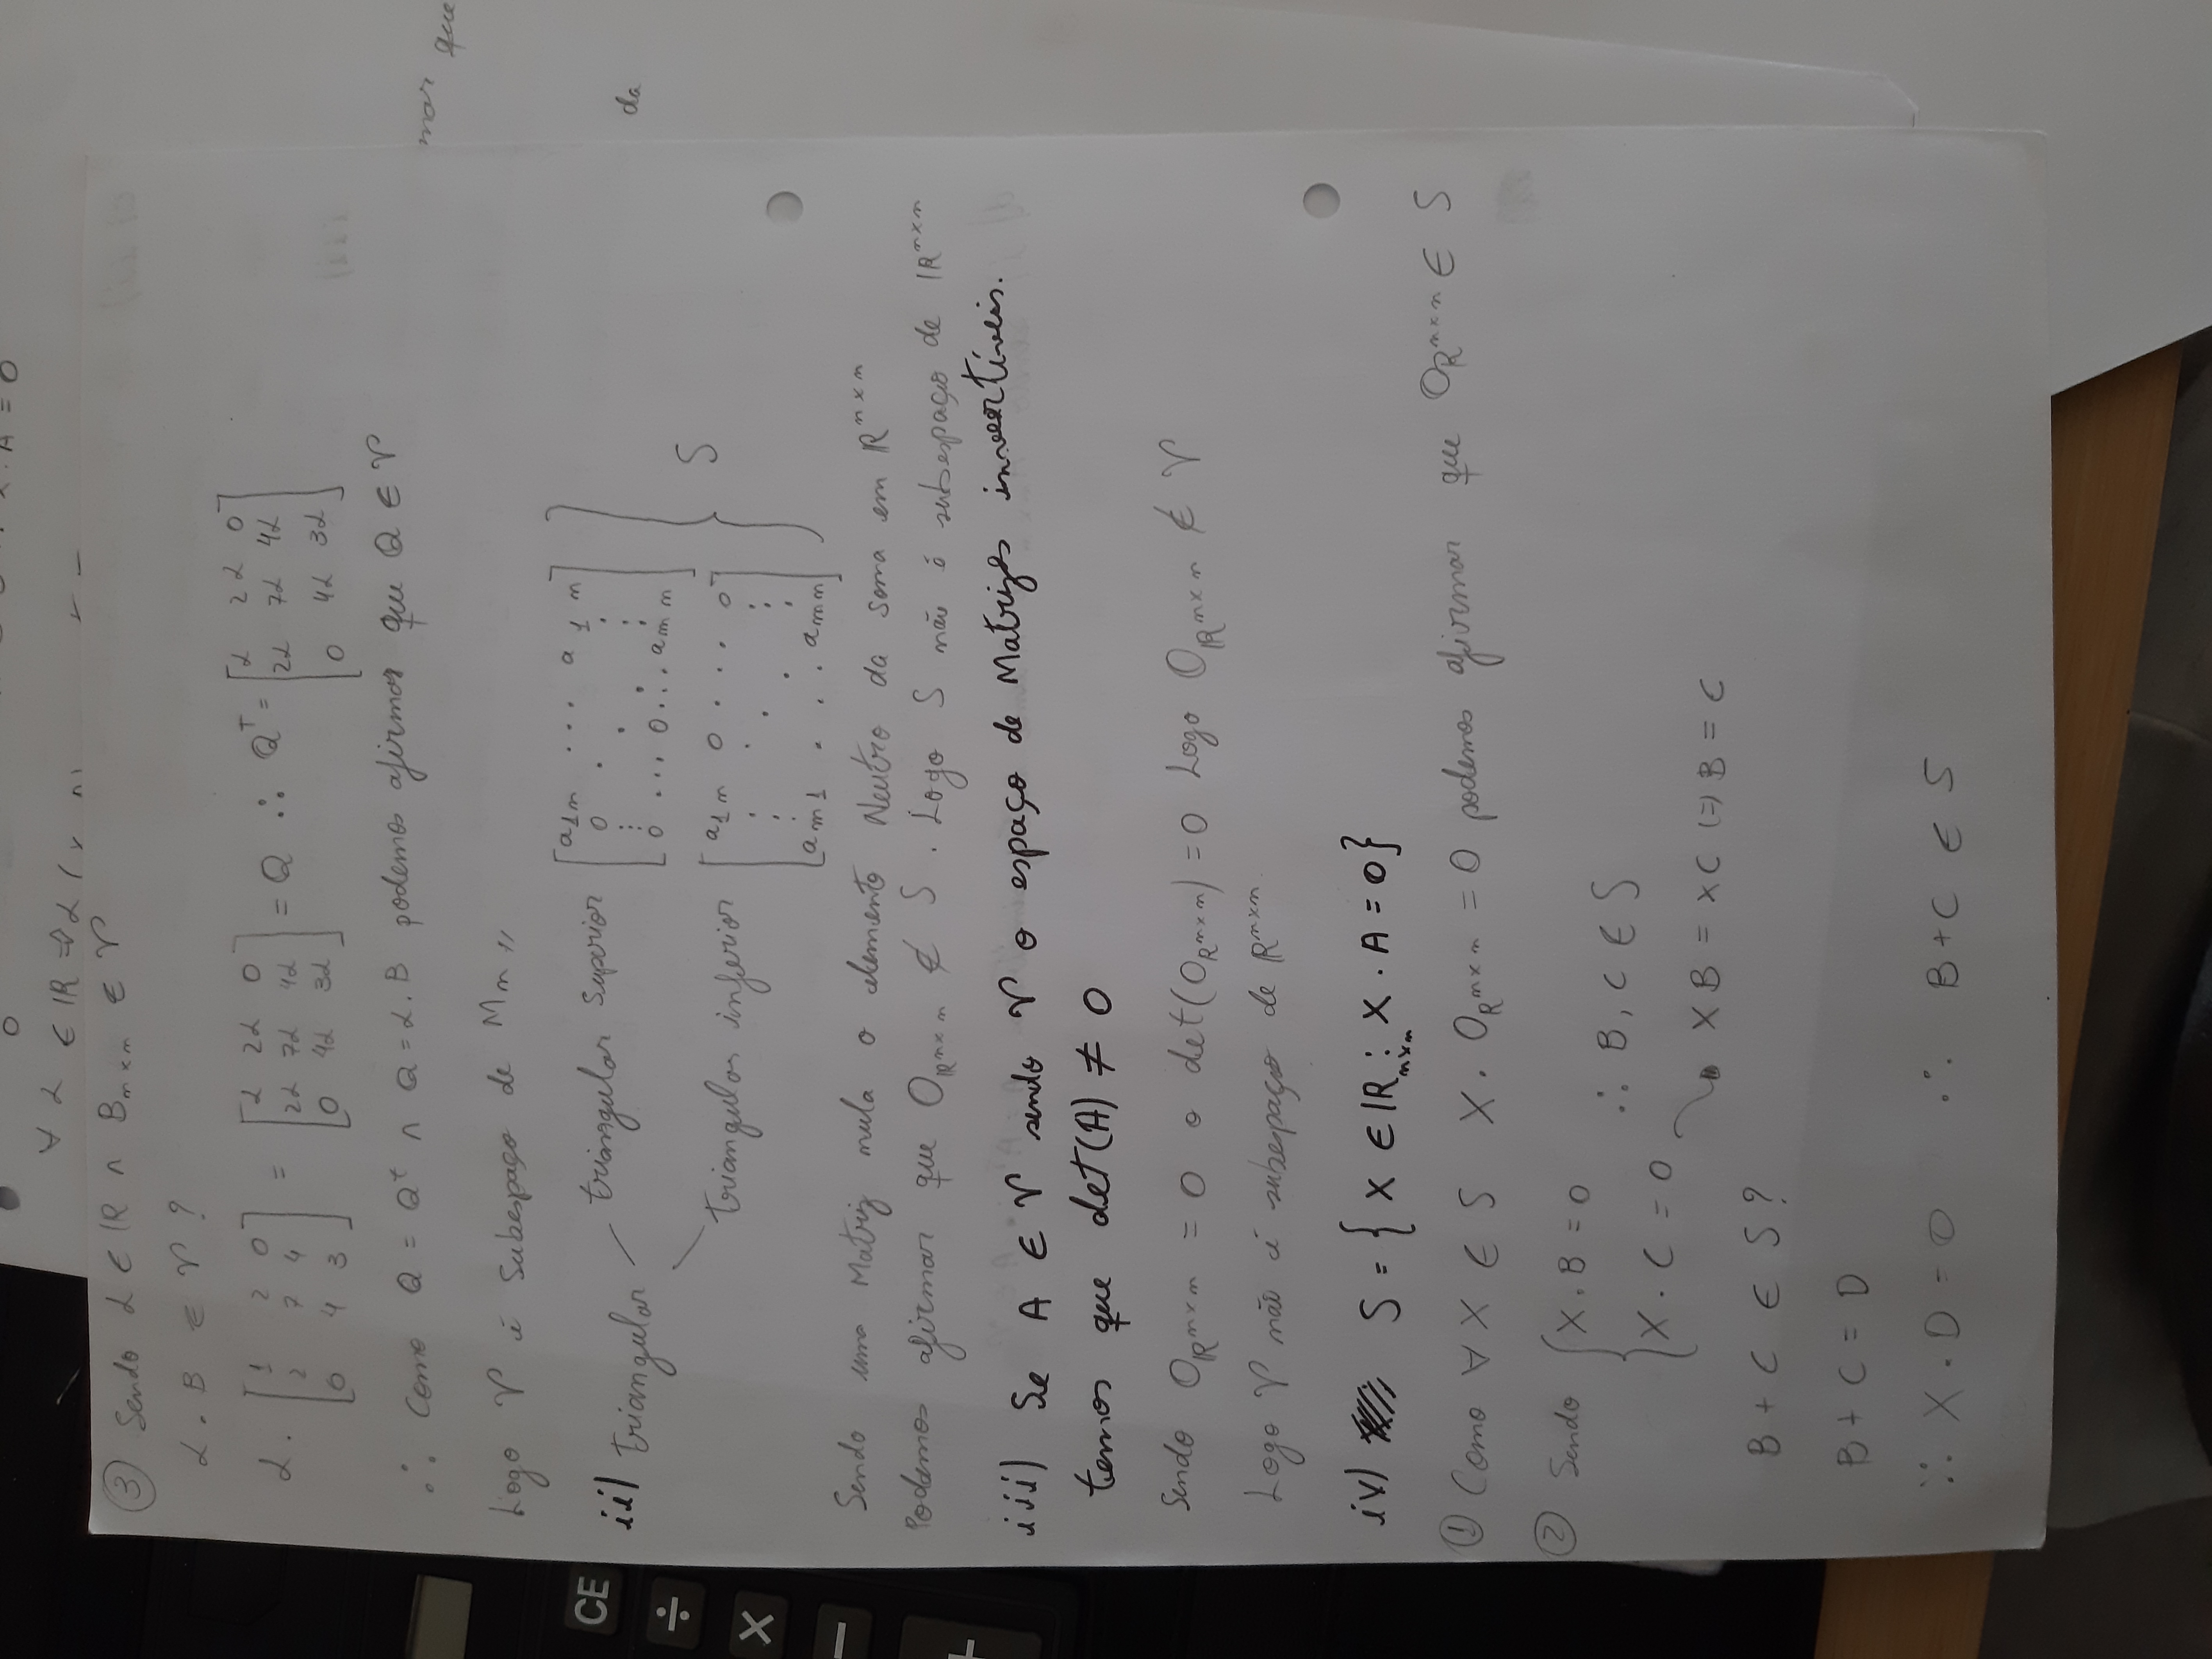 0 X . A = 0
∀ α ∈ ℝ ⇒ α (
③ Sendo α ∈ ℝ ∧ Bₙₓₙ ∈ V
α . B ∈ V ?
α . [1 2 0; 2 7 4; 0 4 3] = [α 2α 0; 2α 7α 4α; 0 4α 3α] = Q ∴ Qᵀ = [α 2α 0; 2α 7α 4α; 0 4α 3α]
∴ Como Q = Qᵗ ∧ Q = α . B podemos afirmar que Q ∈ V
mar que
Logo V é Subespaço de Mn //
ii) triangular
triangular Superior [a1n ... a1n; 0 . . ⋮; 0 ... 0 ... ann]
triangular inferior [a1n 0 ... 0; ⋮ . . ⋮; an1 . . . ann]
} S
da
Sendo uma Matriz nula o elemento Neutro da soma em ℝⁿˣⁿ
Podemos afirmar que 0ℝⁿˣⁿ ∉ S . Logo S não é subespaço de ℝⁿˣⁿ
iii) Se A ∈ V sendo V o espaço de Matrizes invertíveis.
temos que det(A) ≠ 0
Sendo 0ℝⁿˣⁿ = 0 o det(0ℝⁿˣⁿ) = 0 Logo 0ℝⁿˣⁿ ∉ V
Logo V não é subespaço de ℝⁿˣⁿ.
iv) S = { X ∈ ℝₙₓₙ : X . A = 0 }
① Como ∀ X ∈ S X . 0ℝⁿˣⁿ = 0 podemos afirmar que 0ℝⁿˣⁿ ∈ S
② Sendo { X . B = 0
X . C = 0
∴ B, C ∈ S
XB = XC (=) B = C
B + C ∈ S ?
B + C = D
∵ X . D = 0 ∴ B + C ∈ S
CE
÷
×
−
+